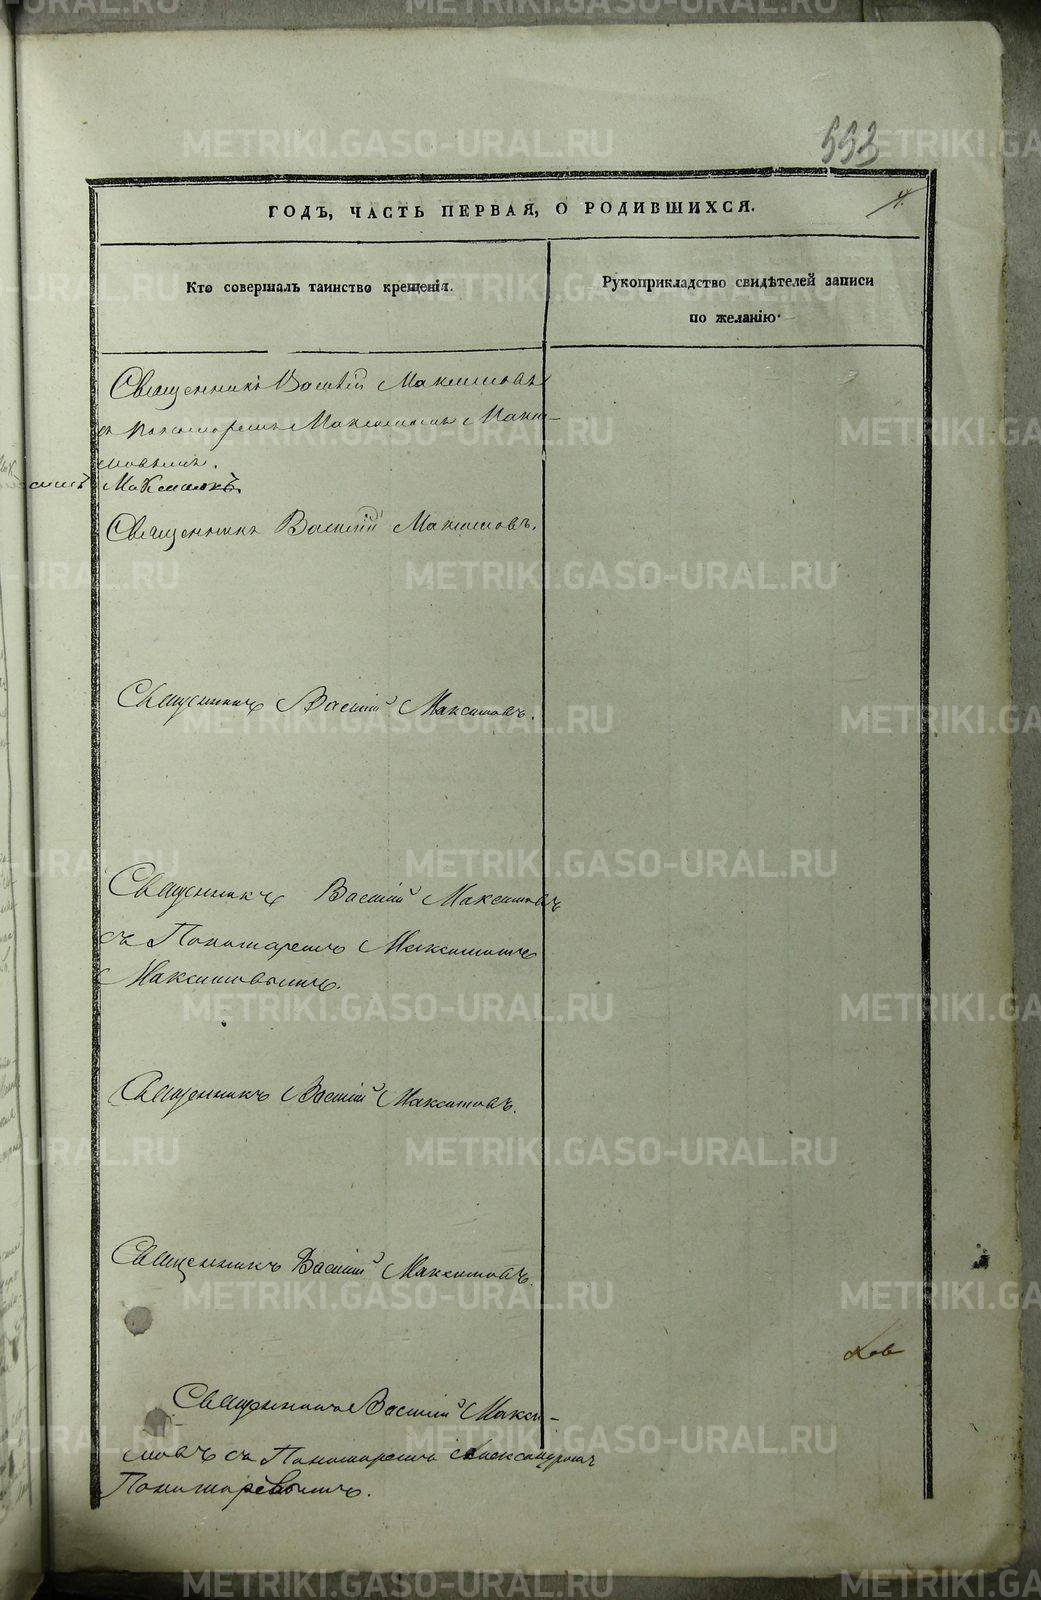 553
4.
ГОДЪ, ЧАСТЬ ПЕРВАЯ, О РОДИВШИХСЯ.
Кто совершалъ таинство крещенія.
Рукоприкладство свидѣтелей записи
по желанію.
Священникъ Василій Максимовъ
съ Пономаремъ Максимомъ Макси-
мовымъ.
Священникъ Василій Максимовъ.
Священникъ Василій Максимовъ.
Священникъ Василій Максимовъ
съ Пономаремъ Максимомъ
Максимовымъ.
Священникъ Василій Максимовъ.
Священникъ Василій Максимовъ.
Священникъ Василій Макси-
мовъ съ Пономаремъ Александромъ
Пономаревымъ.
METRIKI.GASO-URAL.RU